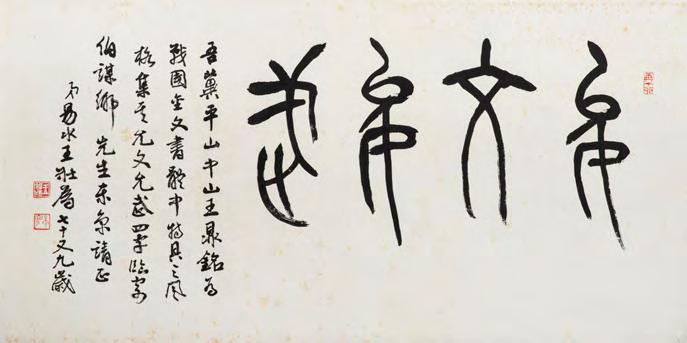 允文允武
吾冀平山中山王鼎銘為
戰國金文書體中特具之風
格集其允文允武四字臨寄
伯謀鄉先生東京請正
弟易水王壯為七十又九歲